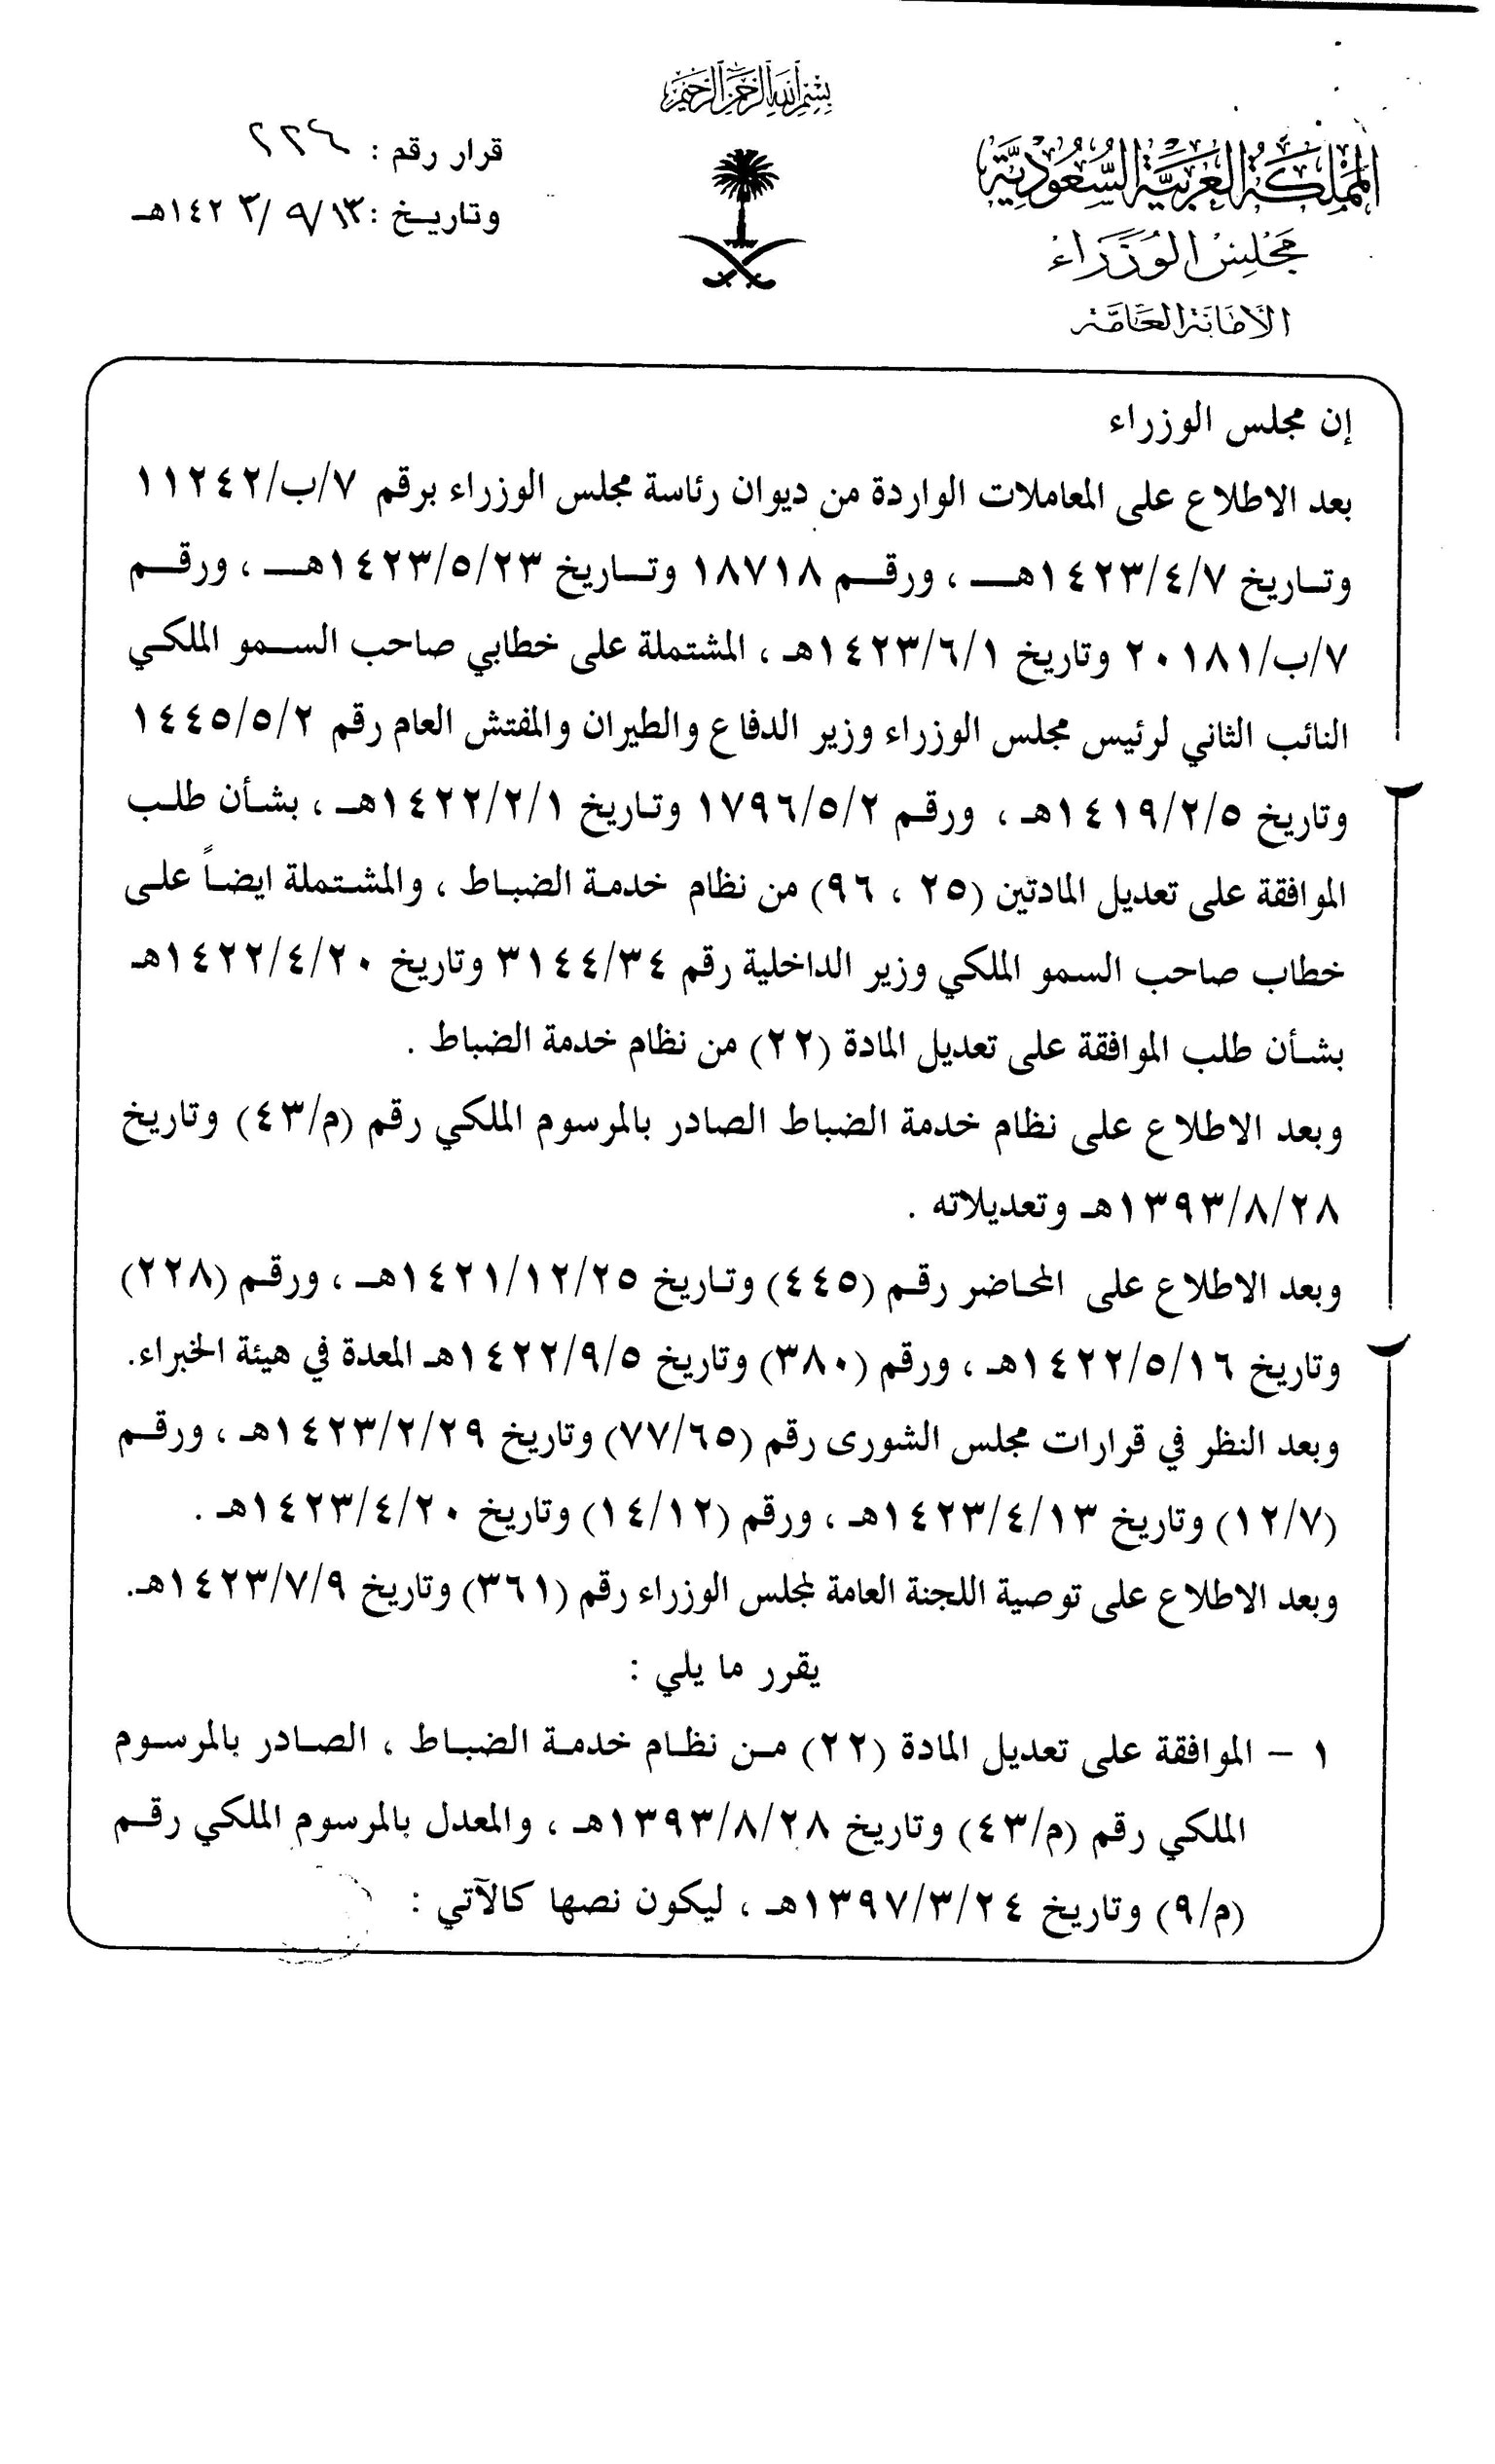 بسم الله الرحمن الرحيم
المملكة العربية السعودية
مجلس الوزراء
الأمانة العامة
قرار رقم : ٢٢٦
وتاريخ : ١٤٢٣/٩/١٣هـ
إن مجلس الوزراء
بعد الاطلاع على المعاملات الواردة من ديوان رئاسة مجلس الوزراء برقم ٧/ب/١١٢٤٢
وتاريخ ١٤٢٣/٤/٧هـ ، ورقم ١٨٧١٨ وتاريخ ١٤٢٣/٥/٢٣هـ ، ورقم
٧/ب/٢٠١٨١ وتاريخ ١٤٢٣/٦/١هـ ، المشتملة على خطابي صاحب السمو الملكي
النائب الثاني لرئيس مجلس الوزراء وزير الدفاع والطيران والمفتش العام رقم ١٤٤٥/٥/٢
وتاريخ ١٤١٩/٢/٥هـ ، ورقم ١٧٩٦/٥/٢ وتاريخ ١٤٢٢/٢/١هـ ، بشأن طلب
الموافقة على تعديل المادتين (٢٥ ، ٩٦) من نظام خدمة الضباط ، والمشتملة ايضاً على
خطاب صاحب السمو الملكي وزير الداخلية رقم ٣١٤٤/٣٤ وتاريخ ١٤٢٢/٤/٢٠هـ
بشأن طلب الموافقة على تعديل المادة (٢٢) من نظام خدمة الضباط .
وبعد الاطلاع على نظام خدمة الضباط الصادر بالمرسوم الملكي رقم (م/٤٣) وتاريخ
١٣٩٣/٨/٢٨هـ وتعديلاته .
وبعد الاطلاع على المحاضر رقم (٤٤٥) وتاريخ ١٤٢١/١٢/٢٥هـ ، ورقم (٢٢٨)
وتاريخ ١٤٢٢/٥/١٦هـ ، ورقم (٣٨٠) وتاريخ ١٤٢٢/٩/٥هـ المعدة في هيئة الخبراء.
وبعد النظر في قرارات مجلس الشورى رقم (٧٧/٦٥) وتاريخ ١٤٢٣/٢/٢٩هـ ، ورقم
(١٢/٧) وتاريخ ١٤٢٣/٤/١٣هـ ، ورقم (١٤/١٢) وتاريخ ١٤٢٣/٤/٢٠هـ .
وبعد الاطلاع على توصية اللجنة العامة لمجلس الوزراء رقم (٣٦١) وتاريخ ١٤٢٣/٧/٩هـ.
يقرر ما يلي :
١ - الموافقة على تعديل المادة (٢٢) من نظام خدمة الضباط ، الصادر بالمرسوم
الملكي رقم (م/٤٣) وتاريخ ١٣٩٣/٨/٢٨هـ ، والمعدل بالمرسوم الملكي رقم
(م/٩) وتاريخ ١٣٩٧/٣/٢٤هـ ، ليكون نصها كالآتي :